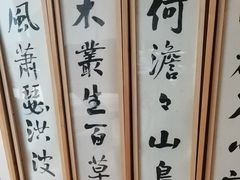 何澹々山島
木叢生百草
風蕭瑟洪波